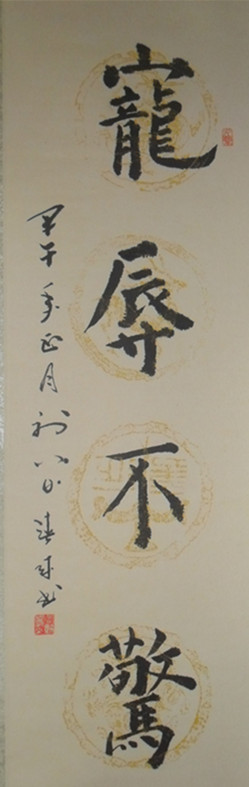 寵辱不驚
甲午年正月初八日 书